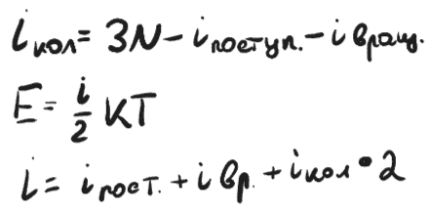 iкол = 3N - iпоступ. - iвращ.
E = i/2 KT
i = iпост. + iвр. + iкол • 2